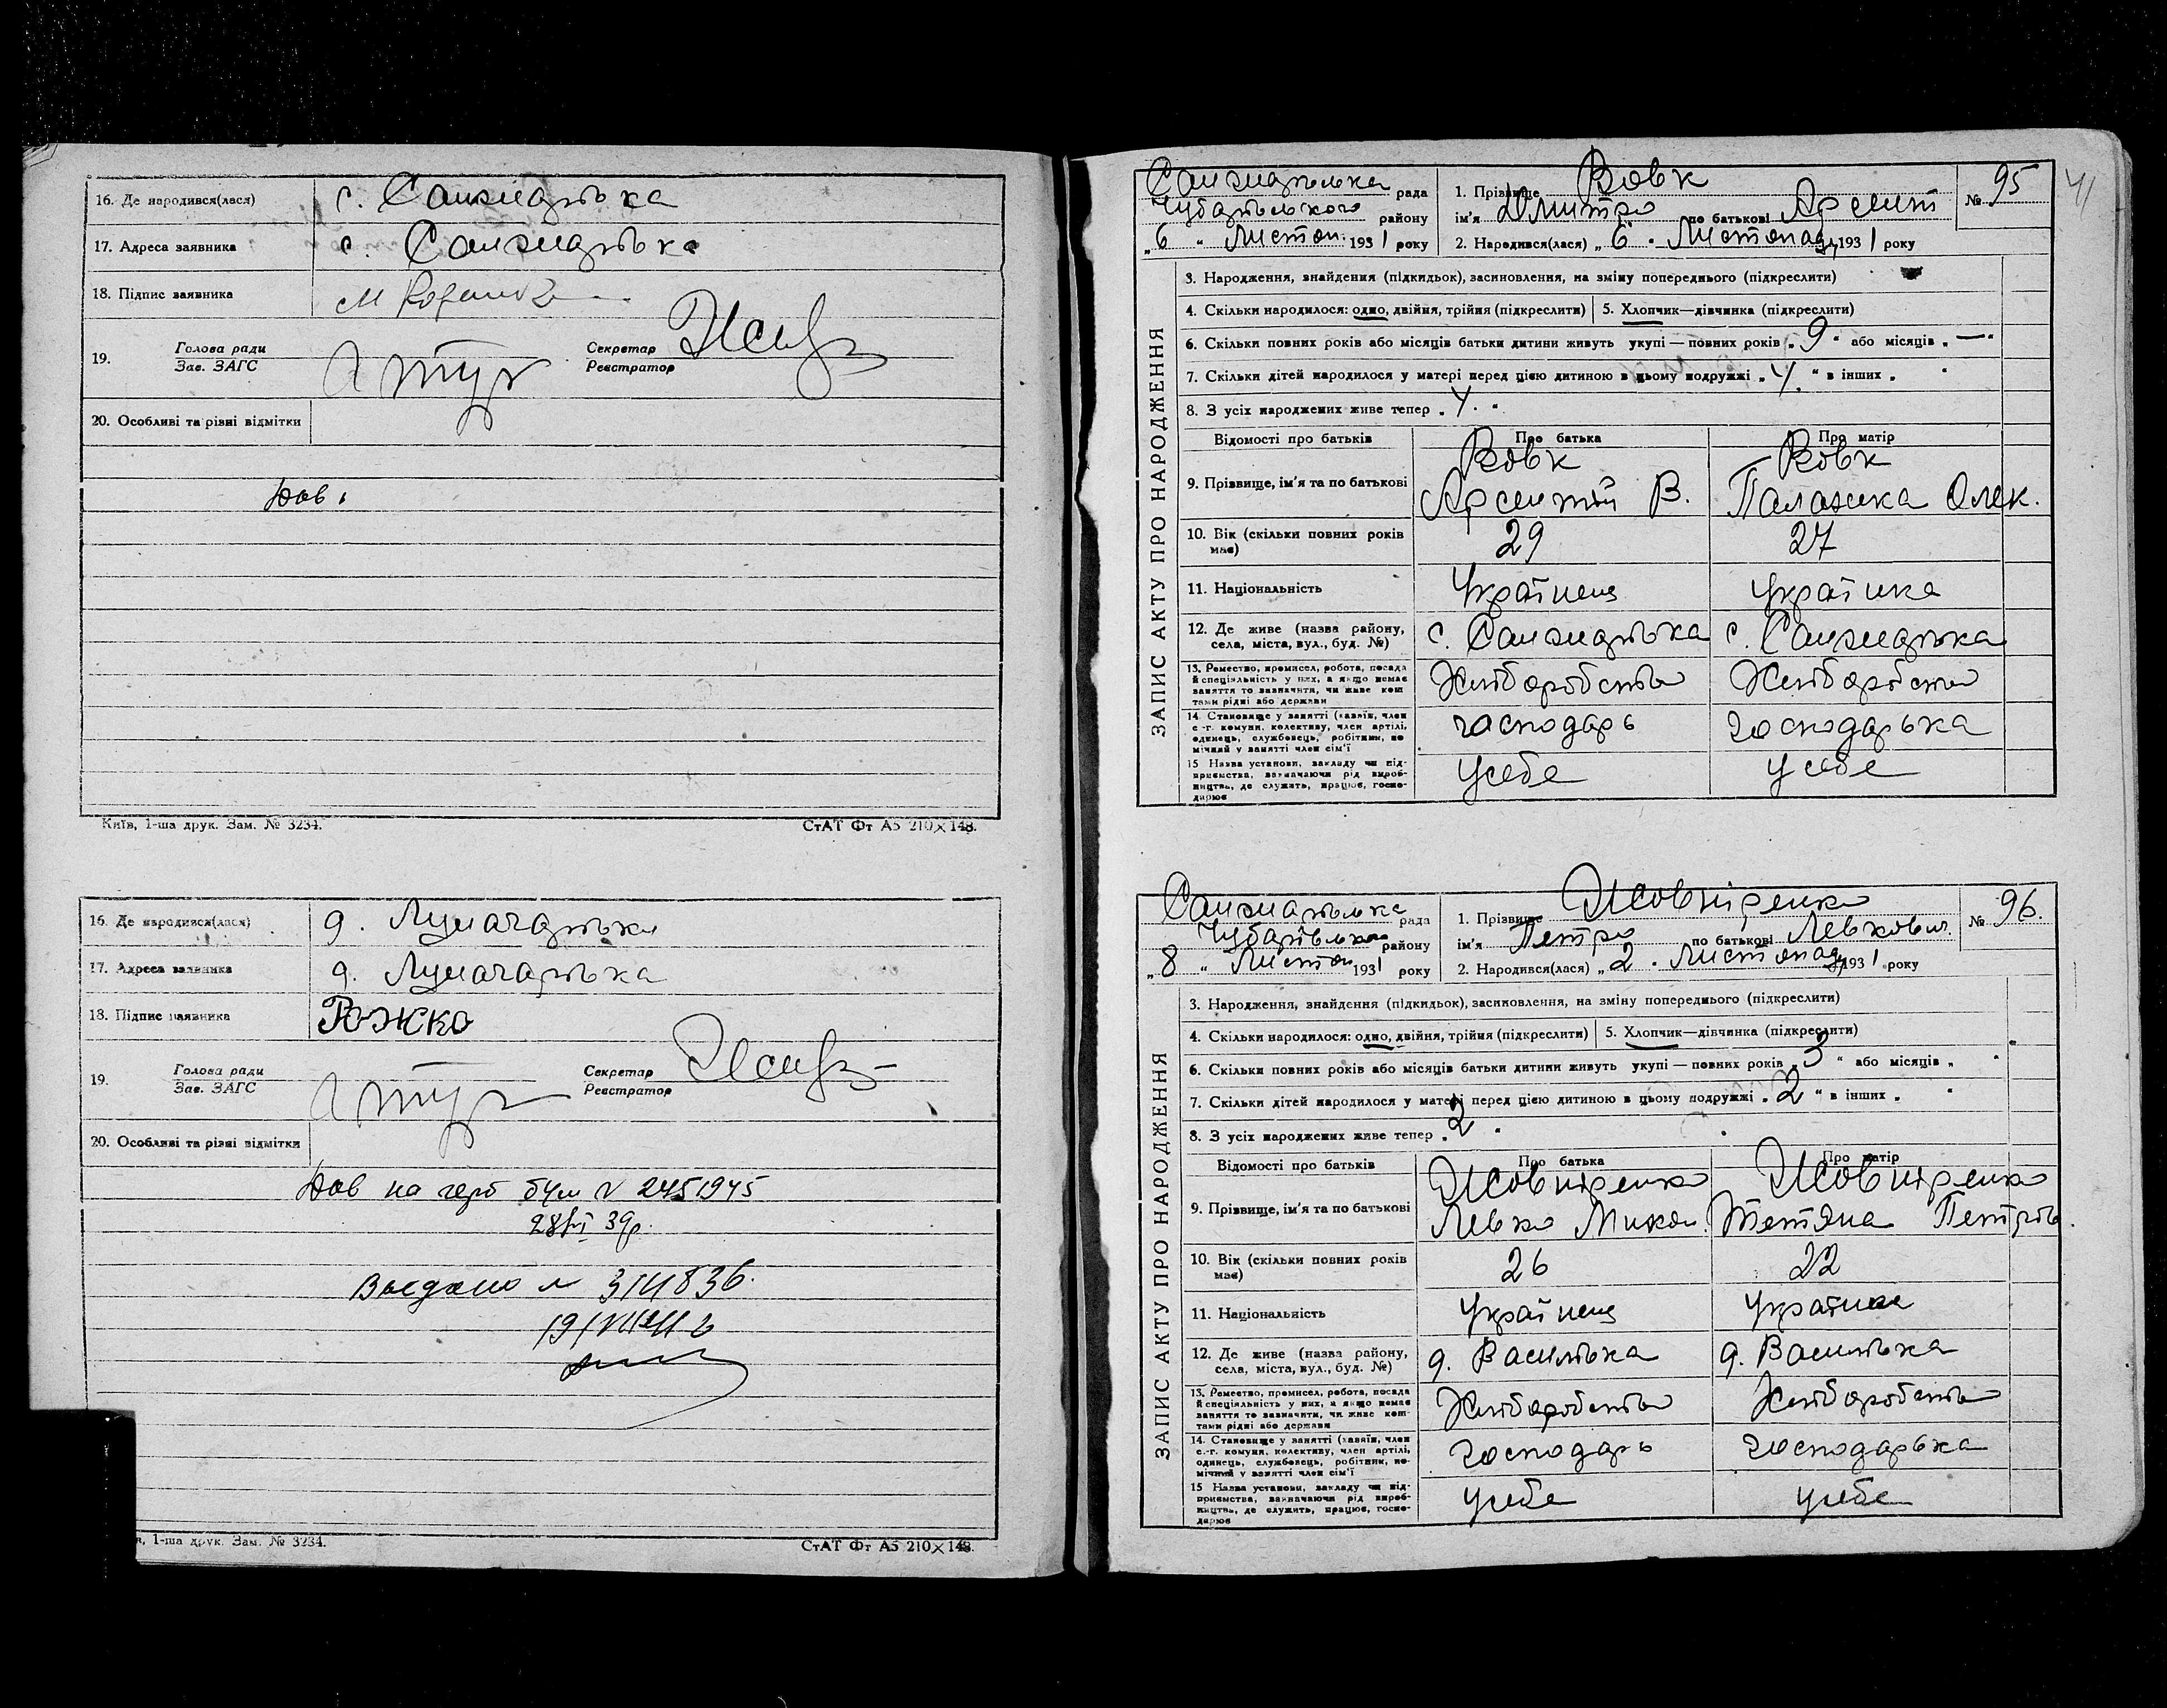 16. Де народився(лася) с. Санжарівка
17. Адреса заявника с. Санжарівка
18. Підпис заявника М
19. Голова ради Зав. ЗАГС Секретар Реєстратор
20. Особливі та різні відмітки
Дов.
Київ, 1-ша друк. Зам. № 3234. СтАТ Фт А5 210×148.
16. Де народився(лася) д. Луначарівка
17. Адреса заявника д. Луначарівка
18. Підпис заявника Рожко
19. Голова ради Зав. ЗАГС Секретар Реєстратор
20. Особливі та різні відмітки
Дов на герб бум № 2451945
39р.
Выдано №
1-ша друк. Зам. № 3234. СтАТ Фт А5 210×148.
41
ЗАПИС АКТУ ПРО НАРОДЖЕННЯ
рада
Чубарівського району
„6" Листоп. 1931 року
1. Прізвище Вовк
ім'я Дмитро по батькові Арсент
№ 95
2. Народився(лася) „6" Листопаду 1931 року
3. Народження, знайдення (підкидьок), засиновлення, на зміну попереднього (підкреслити)
4. Скільки народилося: одно, двійня, трійня (підкреслити) 5. Хлопчик—дівчинка (підкреслити)
6. Скільки повних років або місяців батьки дитини живуть укупі — повних років „9" або місяців „—"
7. Скільки дітей народилося у матері перед цією дитиною в цьому подружжі „4." в інших „ "
8. З усіх народжених живе тепер „4."
Відомості про батьків Про батька Про матір
9. Прізвище, ім'я та по батькові Вовк Арсентій В. Вовк Палажка Олек.
10. Вік (скільки повних років має) 29 27
11. Національність Українець Українка
12. Де живе (назва району, села, міста, вул., буд. №) с. Санжарівка с. Санжарівка
13. Ремество, промисел, робота, посада й спеціяльність у них, а якщо немає заняття то зазначити, чи живе коштами рідні або держави Хліборобство Хліборобство
14. Становище у занятті (хазяїн, член с.-г. комуни, колективу, член артілі, одинець, службовець, робітник, помічний у занятті член сім'ї господарь господарька
15 Назва установи, закладу чи підприємства, зазначаючи рід виробництва, де служить, працює, господарює усебе усебе
ЗАПИС АКТУ ПРО НАРОДЖЕННЯ
рада
району
„8" Листоп 1931 року
1. Прізвище Жовніренко
ім'я Петро по батькові Левкович.
№ 96.
2. Народився(лася) „2" Листопаду 1931 року
3. Народження, знайдення (підкидьок), засиновлення, на зміну попереднього (підкреслити)
4. Скільки народилося: одно, двійня, трійня (підкреслити) 5. Хлопчик—дівчинка (підкреслити)
6. Скільки повних років або місяців батьки дитини живуть укупі — повних років „3" або місяців „ "
7. Скільки дітей народилося у матері перед цією дитиною в цьому подружжі „2" в інших „ "
8. З усіх народжених живе тепер „2"
Відомості про батьків Про батька Про матір
9. Прізвище, ім'я та по батькові Жовніренко Левко Микол. Жовніренко Тетяна Петров.
10. Вік (скільки повних років має) 26 22
11. Національність Українець Українка
12. Де живе (назва району, села, міста, вул., буд. №) д. Василівка д. Василівка
13. Ремество, промисел, робота, посада й спеціяльність у них, а якщо немає заняття то зазначити, чи живе коштами рідні або держави Хліборобство Хліборобство
14. Становище у занятті (хазяїн, член с.-г. комуни, колективу, член артілі, одинець, службовець, робітник, помічний у занятті член сім'ї господарь господарька
15 Назва установи, закладу чи підприємства, зазначаючи рід виробництва, де служить, працює, господарює усебе усебе